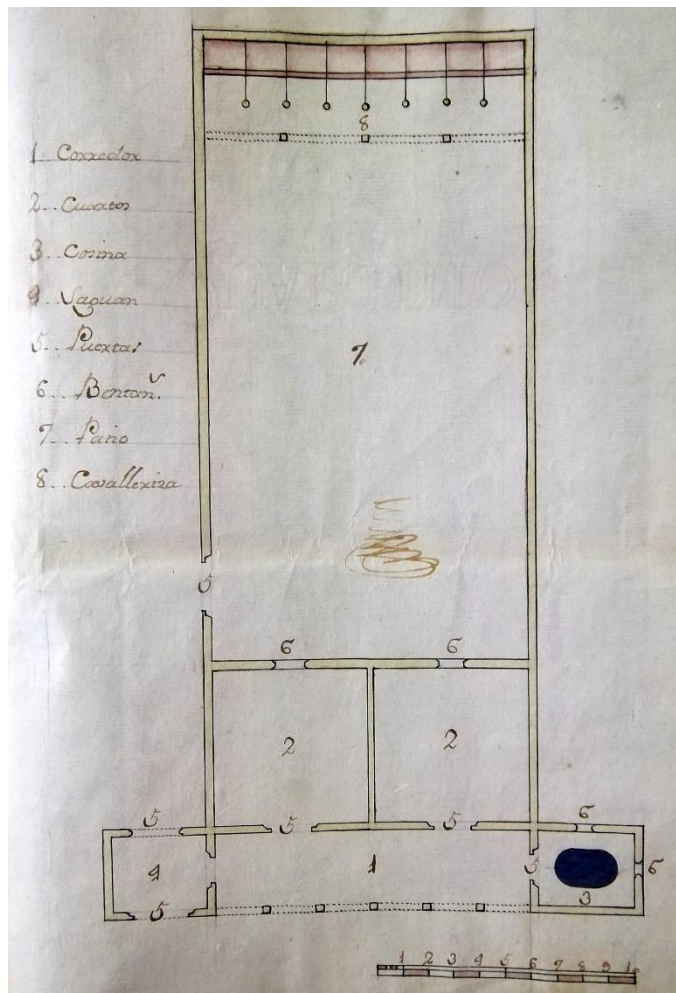 1 Corredor
2.. Cuartos
3.. Cosina
4 Saguan
5.. Puertas
6.. Bentan.ˢ
7.. Patio
8.. Cavalleriza
8
7
5
6 6
2 2
5 5 5 6
4 1 5 6
5 3
1 2 3 4 5 6 7 8 9 10